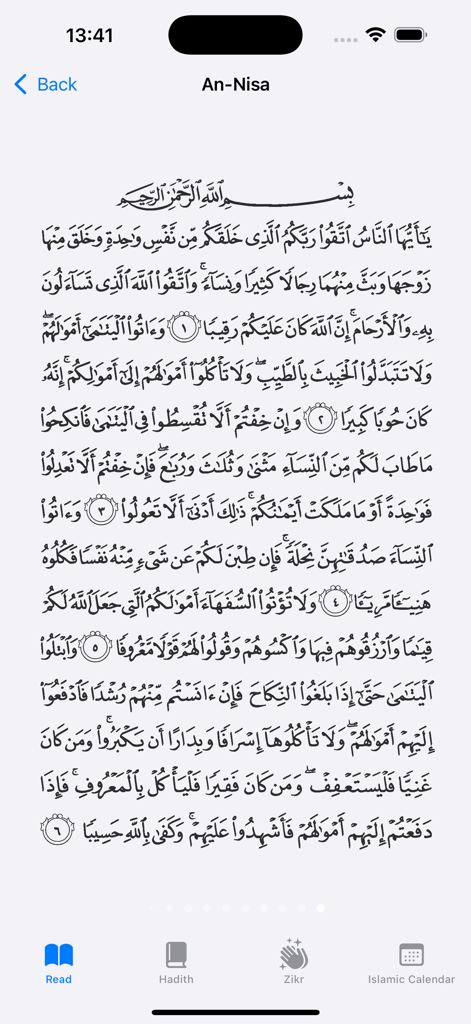 13:41
Back
An-Nisa
بِسْمِ ٱللَّهِ ٱلرَّحْمَٰنِ ٱلرَّحِيمِ
يَٰٓأَيُّهَا ٱلنَّاسُ ٱتَّقُوا۟ رَبَّكُمُ ٱلَّذِى خَلَقَكُم مِّن نَّفْسٍ وَٰحِدَةٍ وَخَلَقَ مِنْهَا
زَوْجَهَا وَبَثَّ مِنْهُمَا رِجَالًا كَثِيرًا وَنِسَآءً ۚ وَٱتَّقُوا۟ ٱللَّهَ ٱلَّذِى تَسَآءَلُونَ
بِهِۦ وَٱلْأَرْحَامَ ۚ إِنَّ ٱللَّهَ كَانَ عَلَيْكُمْ رَقِيبًا ١ وَءَاتُوا۟ ٱلْيَتَٰمَىٰٓ أَمْوَٰلَهُمْ ۖ
وَلَا تَتَبَدَّلُوا۟ ٱلْخَبِيثَ بِٱلطَّيِّبِ ۖ وَلَا تَأْكُلُوٓا۟ أَمْوَٰلَهُمْ إِلَىٰٓ أَمْوَٰلِكُمْ ۚ إِنَّهُۥ
كَانَ حُوبًا كَبِيرًا ٢ وَإِنْ خِفْتُمْ أَلَّا تُقْسِطُوا۟ فِى ٱلْيَتَٰمَىٰ فَٱنكِحُوا۟
مَا طَابَ لَكُم مِّنَ ٱلنِّسَآءِ مَثْنَىٰ وَثُلَٰثَ وَرُبَٰعَ ۖ فَإِنْ خِفْتُمْ أَلَّا تَعْدِلُوا۟
فَوَٰحِدَةً أَوْ مَا مَلَكَتْ أَيْمَٰنُكُمْ ۚ ذَٰلِكَ أَدْنَىٰٓ أَلَّا تَعُولُوا۟ ٣ وَءَاتُوا۟
ٱلنِّسَآءَ صَدُقَٰتِهِنَّ نِحْلَةً ۚ فَإِن طِبْنَ لَكُمْ عَن شَىْءٍ مِّنْهُ نَفْسًا فَكُلُوهُ
هَنِيٓـًٔا مَّرِيٓـًٔا ٤ وَلَا تُؤْتُوا۟ ٱلسُّفَهَآءَ أَمْوَٰلَكُمُ ٱلَّتِى جَعَلَ ٱللَّهُ لَكُمْ
قِيَٰمًا وَٱرْزُقُوهُمْ فِيهَا وَٱكْسُوهُمْ وَقُولُوا۟ لَهُمْ قَوْلًا مَّعْرُوفًا ٥ وَٱبْتَلُوا۟
ٱلْيَتَٰمَىٰ حَتَّىٰٓ إِذَا بَلَغُوا۟ ٱلنِّكَاحَ فَإِنْ ءَانَسْتُم مِّنْهُمْ رُشْدًا فَٱدْفَعُوٓا۟
إِلَيْهِمْ أَمْوَٰلَهُمْ ۖ وَلَا تَأْكُلُوهَآ إِسْرَافًا وَبِدَارًا أَن يَكْبَرُوا۟ ۚ وَمَن كَانَ
غَنِيًّا فَلْيَسْتَعْفِفْ ۖ وَمَن كَانَ فَقِيرًا فَلْيَأْكُلْ بِٱلْمَعْرُوفِ ۚ فَإِذَا
دَفَعْتُمْ إِلَيْهِمْ أَمْوَٰلَهُمْ فَأَشْهِدُوا۟ عَلَيْهِمْ ۚ وَكَفَىٰ بِٱللَّهِ حَسِيبًا ٦
Read
Hadith
Zikr
Islamic Calendar